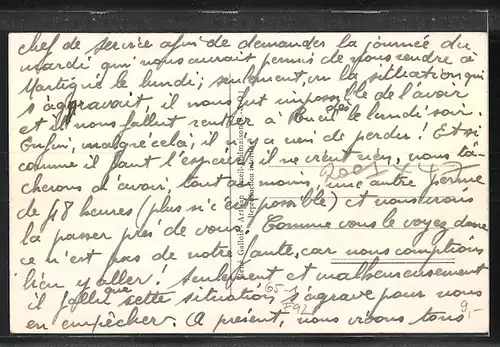 chef de service afin de demander la journée du
mardi qui nous aurait permis de nous rendre à
Martigue le lundi; seulement, vu la situation qui
s'aggravait, il nous fut impossible de l'avoir
et il nous fallut rentrer à dès le lundi soir.
Enfin, malgré cela, il n'y a rien de perdu! Et si
comme il faut l'espérer, il ne vient rien, nous tâ-
cherons d'avoir, tout au moins, une autre perme
de 48 heures (plus si c'est possible) et nous irons
la passer près de vous. Comme vous le voyez donc
ce n'est pas de notre faute, car nous comptions
bien y aller! Seulement et malheureusement
il fallut que cette situation s'agrave pour nous
en empêcher. A présent, nous vivons tous